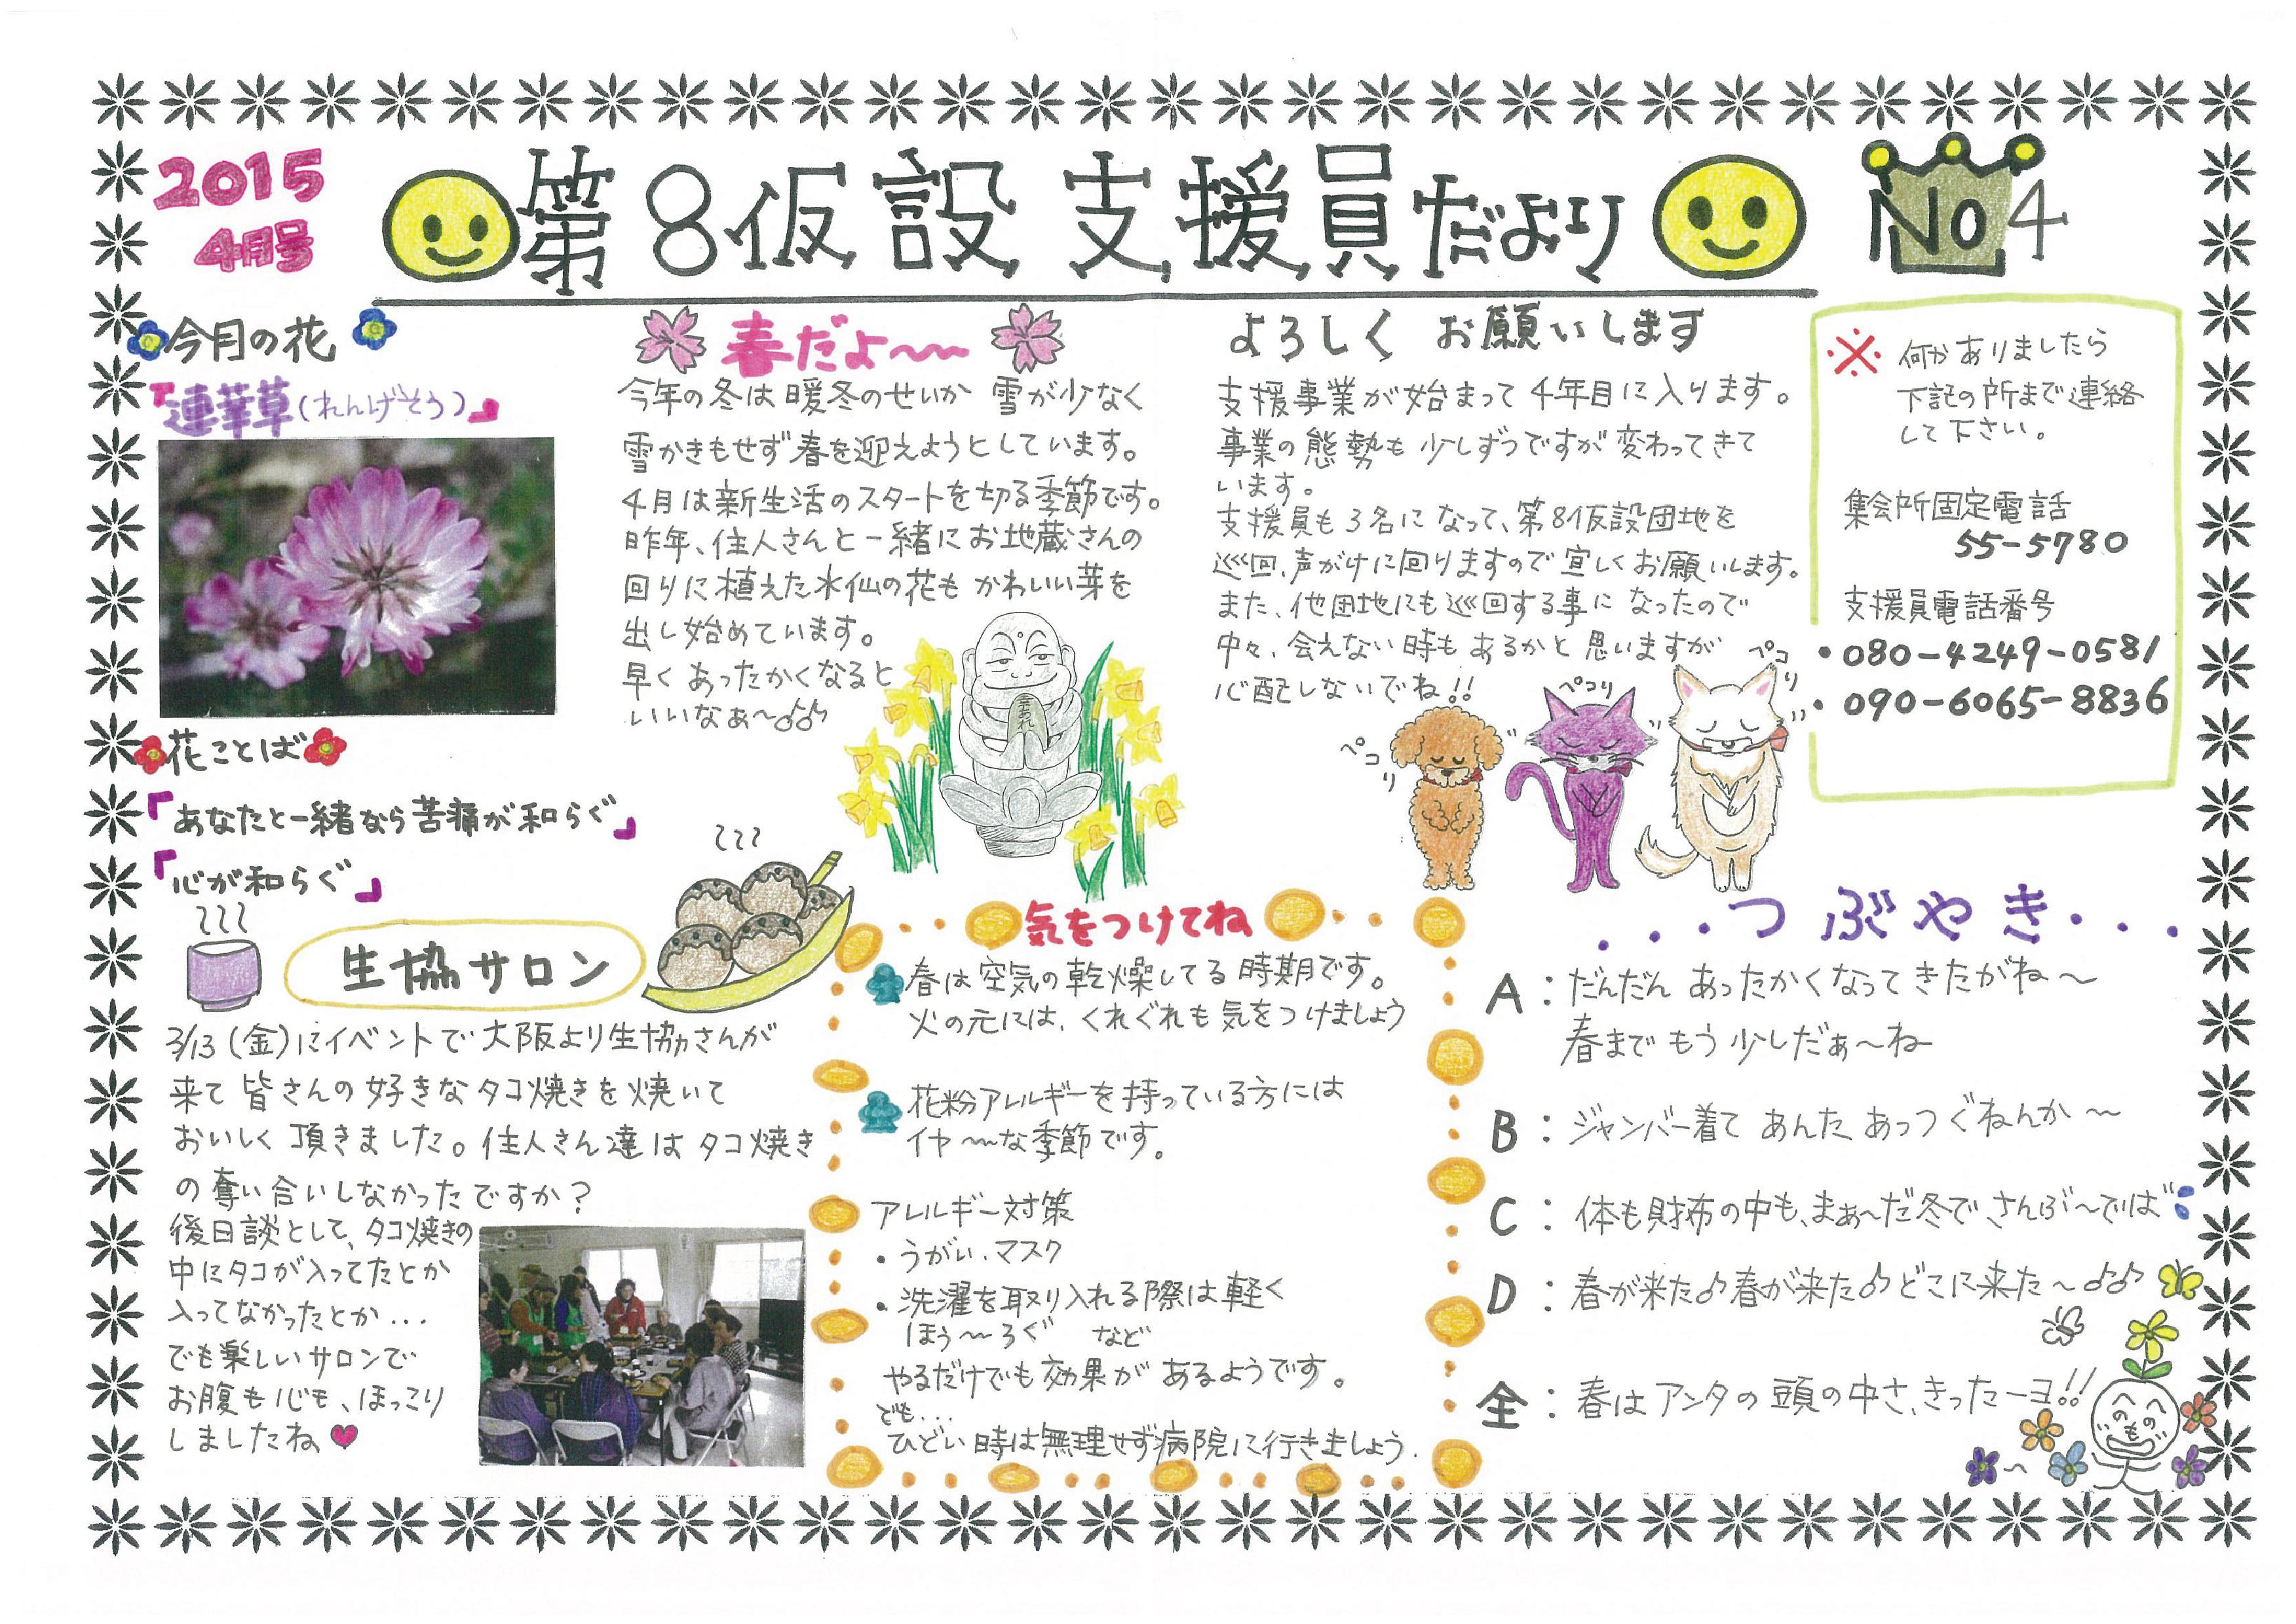 2015
4月号
第8仮設 支援員だより
No4
今月の花
『蓮華草(れんげそう)』
花ことば
『あなたと一緒なら苦痛が和らぐ』
『心が和らぐ』
春だよ〜〜
今年の冬は暖冬のせいか 雪が少なく
雪かきもせず春を迎えようとしています。
4月は新生活のスタートを切る季節です。
昨年、住人さんと一緒にお地蔵さんの
回りに植えた水仙の花も かわいい芽を
出し始めています。
早くあったかくなると
いいなぁ〜♫♫
よろしく お願いします
支援事業が始まって4年目に入ります。
事業の態勢も少しずつですが変わってきて
います。
支援員も3名になって、第8仮設団地を
巡回、声がけに回りますので宜しくお願いします。
また、他団地にも巡回する事になったので
中々、会えない時もあるかと思いますが
心配しないでね!!
ペコリ
ペコリ
ペコリ
※ 何かありましたら
下記の所まで連絡
して下さい。
集会所固定電話
55-5780
支援員電話番号
・080-4249-0581
・090-6065-8836
生協サロン
3/13(金)にイベントで大阪より生協さんが
来て皆さんの好きなタコ焼きを焼いて
おいしく頂きました。住人さん達はタコ焼き
の奪い合いしなかったですか?
後日談として、タコ焼きの
中にタコが入ってたとか
入ってなかったとか...
でも楽しいサロンで
お腹も心も、ほっこり
しましたね♥
気をつけてね
春は空気の乾燥してる時期です。
火の元には、くれぐれも気をつけましょう
花粉アレルギーを持っている方には
イヤ〜〜な季節です。
アレルギー対策
・うがい、マスク
・洗濯を取り入れる際は軽く
ほう〜ろぐ など
やるだけでも効果があるようです。
でも...
ひどい時は無理せず病院に行きましょう.
...つぶやき...
A:だんだん あったかくなってきたがね〜
春までもう少しだぁ〜ね
B:ジャンバー着て あんた、あっつぐねんか〜
C:体も財布の中も、まぁ〜だ冬で、さんぶ〜でば
D:春が来た♪春が来た♪どこに来た〜♫♫
全:春はアンタの頭の中さ、きったーヨ!!